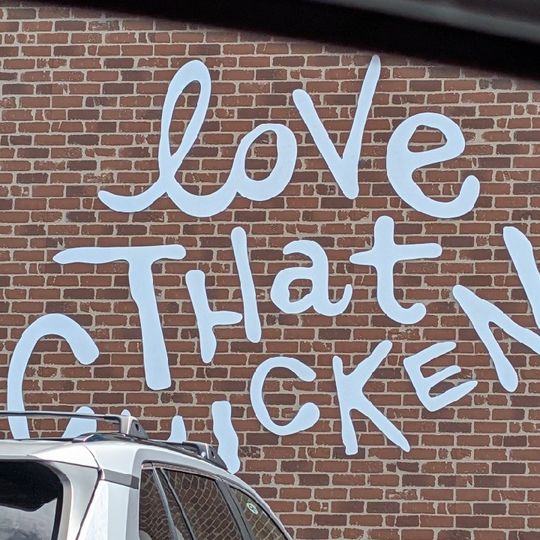 love
THat
CHICKEN